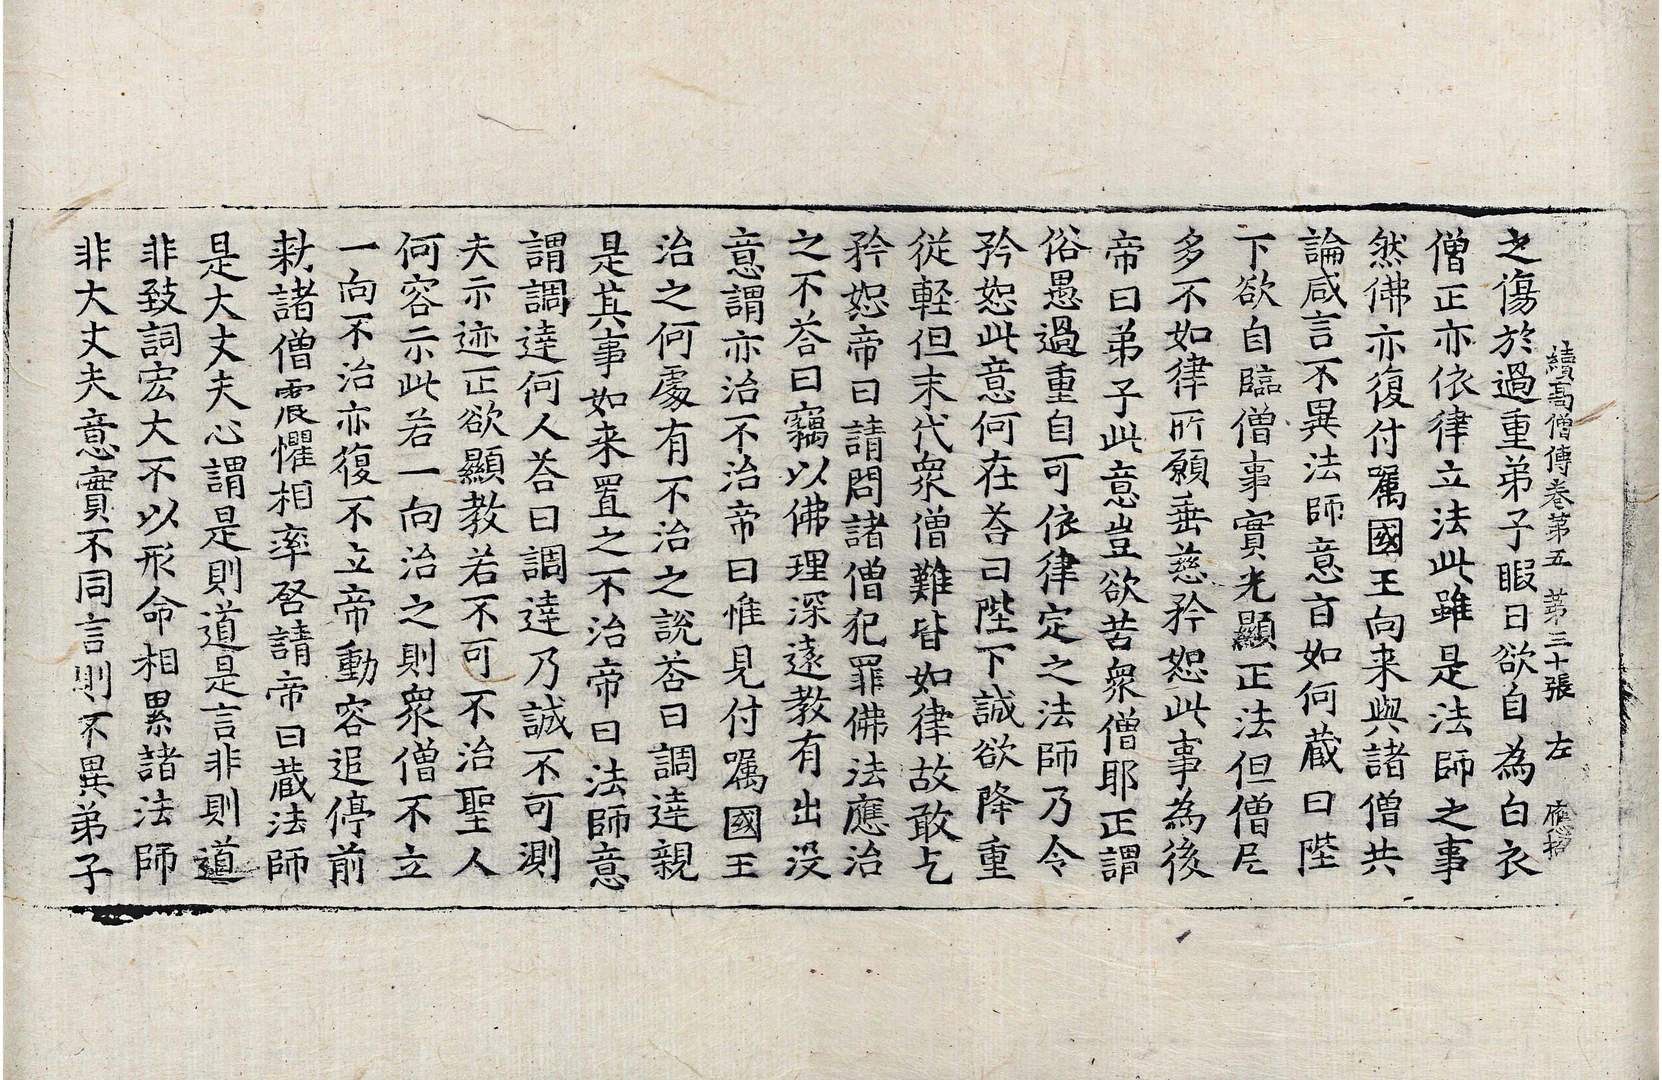 續高僧傳卷第五 第三十張 左
之傷於過重弟子暇日欲自為白衣
僧正亦依律立法此雖是法師之事
然佛亦復付囑國王向来與諸僧共
論咸言不異法師意旨如何蔵曰陛
下欲自臨僧事實光顯正法但僧尼
多不如律所願垂慈矜恕此事為後
帝曰弟子此意豈欲苦衆僧耶正謂
俗愚過重自可依律定之法師乃令
矜恕此意何在荅曰陛下誠欲降重
從軽但末代衆僧難皆如律故敢乞
矜恕帝曰請問諸僧犯罪佛法應治
之不荅曰竊以佛理深遠教有出没
意謂亦治不治帝曰惟見付囑國王
治之何處有不治之說荅曰調達親
是其事如来置之不治帝曰法師意
謂調達何人荅曰調達乃誠不可測
夫示迹正欲顯教若不可不治聖人
何容示此若一向治之則衆僧不立
一向不治亦復不立帝動容追停前
勑諸僧震懼相率啓請帝曰蔵法師
是大丈夫心謂是則道是言非則道
非致詞宏大不以形命相累諸法師
非大丈夫意實不同言則不異弟子